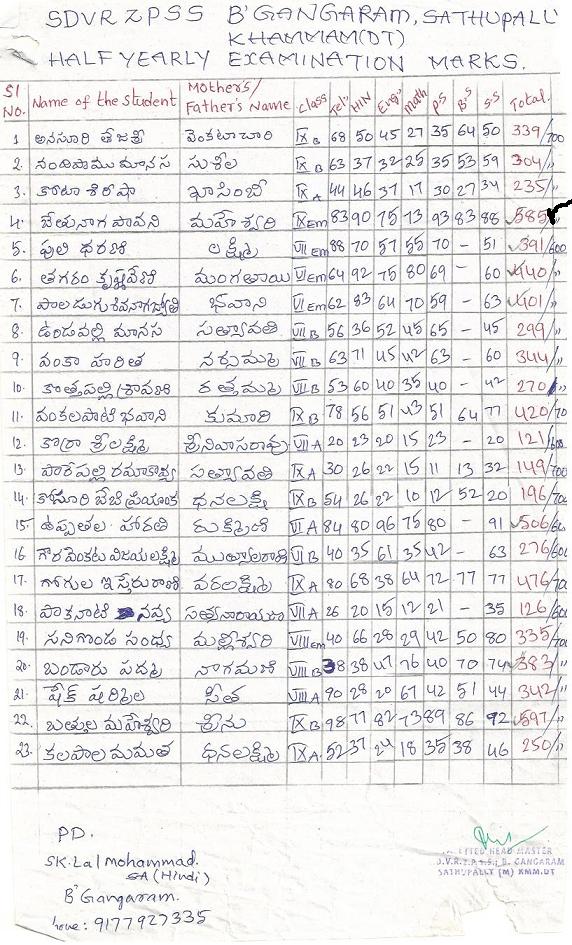 SDVR ZPSS B' GANGARAM, SATHUPALLY
KHAMMAM(DT)
HALF YEARLY EXAMINATION MARKS.
Sl No. Name of the student Mother's/ Father's Name Class Tel" HIN Eng" Math P.S B.S S.S Total.
1 అనసూరి తేజశ్రీ వెంకటాచారి IX B 68 50 45 27 35 64 50 339/700
2. మానస సుశీల IX B 63 37 32 25 35 53 59 304/"
3. కోటా శిరీషా ఖాసింబీ IX A 44 46 37 17 30 27 34 235/"
4. బేతు నాగ పావని మహేశ్వరి IX Em 83 90 75 73 93 83 88 585/"
5. పులి ధరణి లక్ష్మి VII Em 88 70 57 55 70 - 51 391/600
6. తగరం కృష్ణవేణి మంగతాయి VI Em 64 92 75 80 69 - 60 440/"
7. పాలడుగు శివనాగజ్యోతి భవాని VI Em 62 83 64 70 59 - 63 401/"
8. ఉండపల్లి మానస సత్యావతి VII B 56 36 52 45 65 - 45 299/"
9. వంకా హరిత నర్సమ్మ VII B 63 71 45 42 63 - 60 344/"
10. కొత్తపల్లి శ్రావణి రత్తమ్మ VII B 53 60 40 35 40 - 42 270/"
11. వంకలపాటి భవాని కుమారి IX B 78 56 51 43 51 64 77 420/70
12. కొర్రా శ్రీలక్ష్మి శ్రీనివాసరావు VII A 20 23 20 15 23 - 20 121/600
13. పారేపల్లి సత్యావతి IX A 30 26 22 15 11 13 32 149/700
14. బేబి ప్రియాంక ధనలక్ష్మి IX B 54 26 22 10 12 52 20 196/700
15. ఉప్పతల హారతి రుక్మిణి VI A 84 80 96 75 80 - 91 506/60
16 గొర్ర వెంకట విజయలక్ష్మి VI B 40 35 61 35 42 - 63 276/600
17. గోగుల ఇస్తేరురాణి వరలక్ష్మి IX A 80 68 38 64 72 77 77 476/700
18. పాకనాటి నవ్య సత్యనారాయణ VII A 26 20 15 12 21 - 35 126/600
19. సనిగొండ సంధ్య మల్లేశ్వరి VIII Em 40 66 28 29 42 50 80 335/700
20. బండారు పద్మ నాగమణి VIII B 38 38 47 76 40 70 74 383/"
21. షేక్ షర్మిల సీత VIII A 90 28 20 67 42 51 44 342/"
22. బత్తుల మహేశ్వరి శ్రీను IX B 98 77 82 73 89 86 92 597/"
23. కలపాల మమత ధనలక్ష్మి IX A. 52 37 24 18 35 38 46 250/"
PD.
SK. Lal Mohammad.
SA (Hindi)
B" Gangaram.
hone: 9177927335
HEAD MASTER
B. GANGARAM
SATHUPALLY (M) KMM.DT